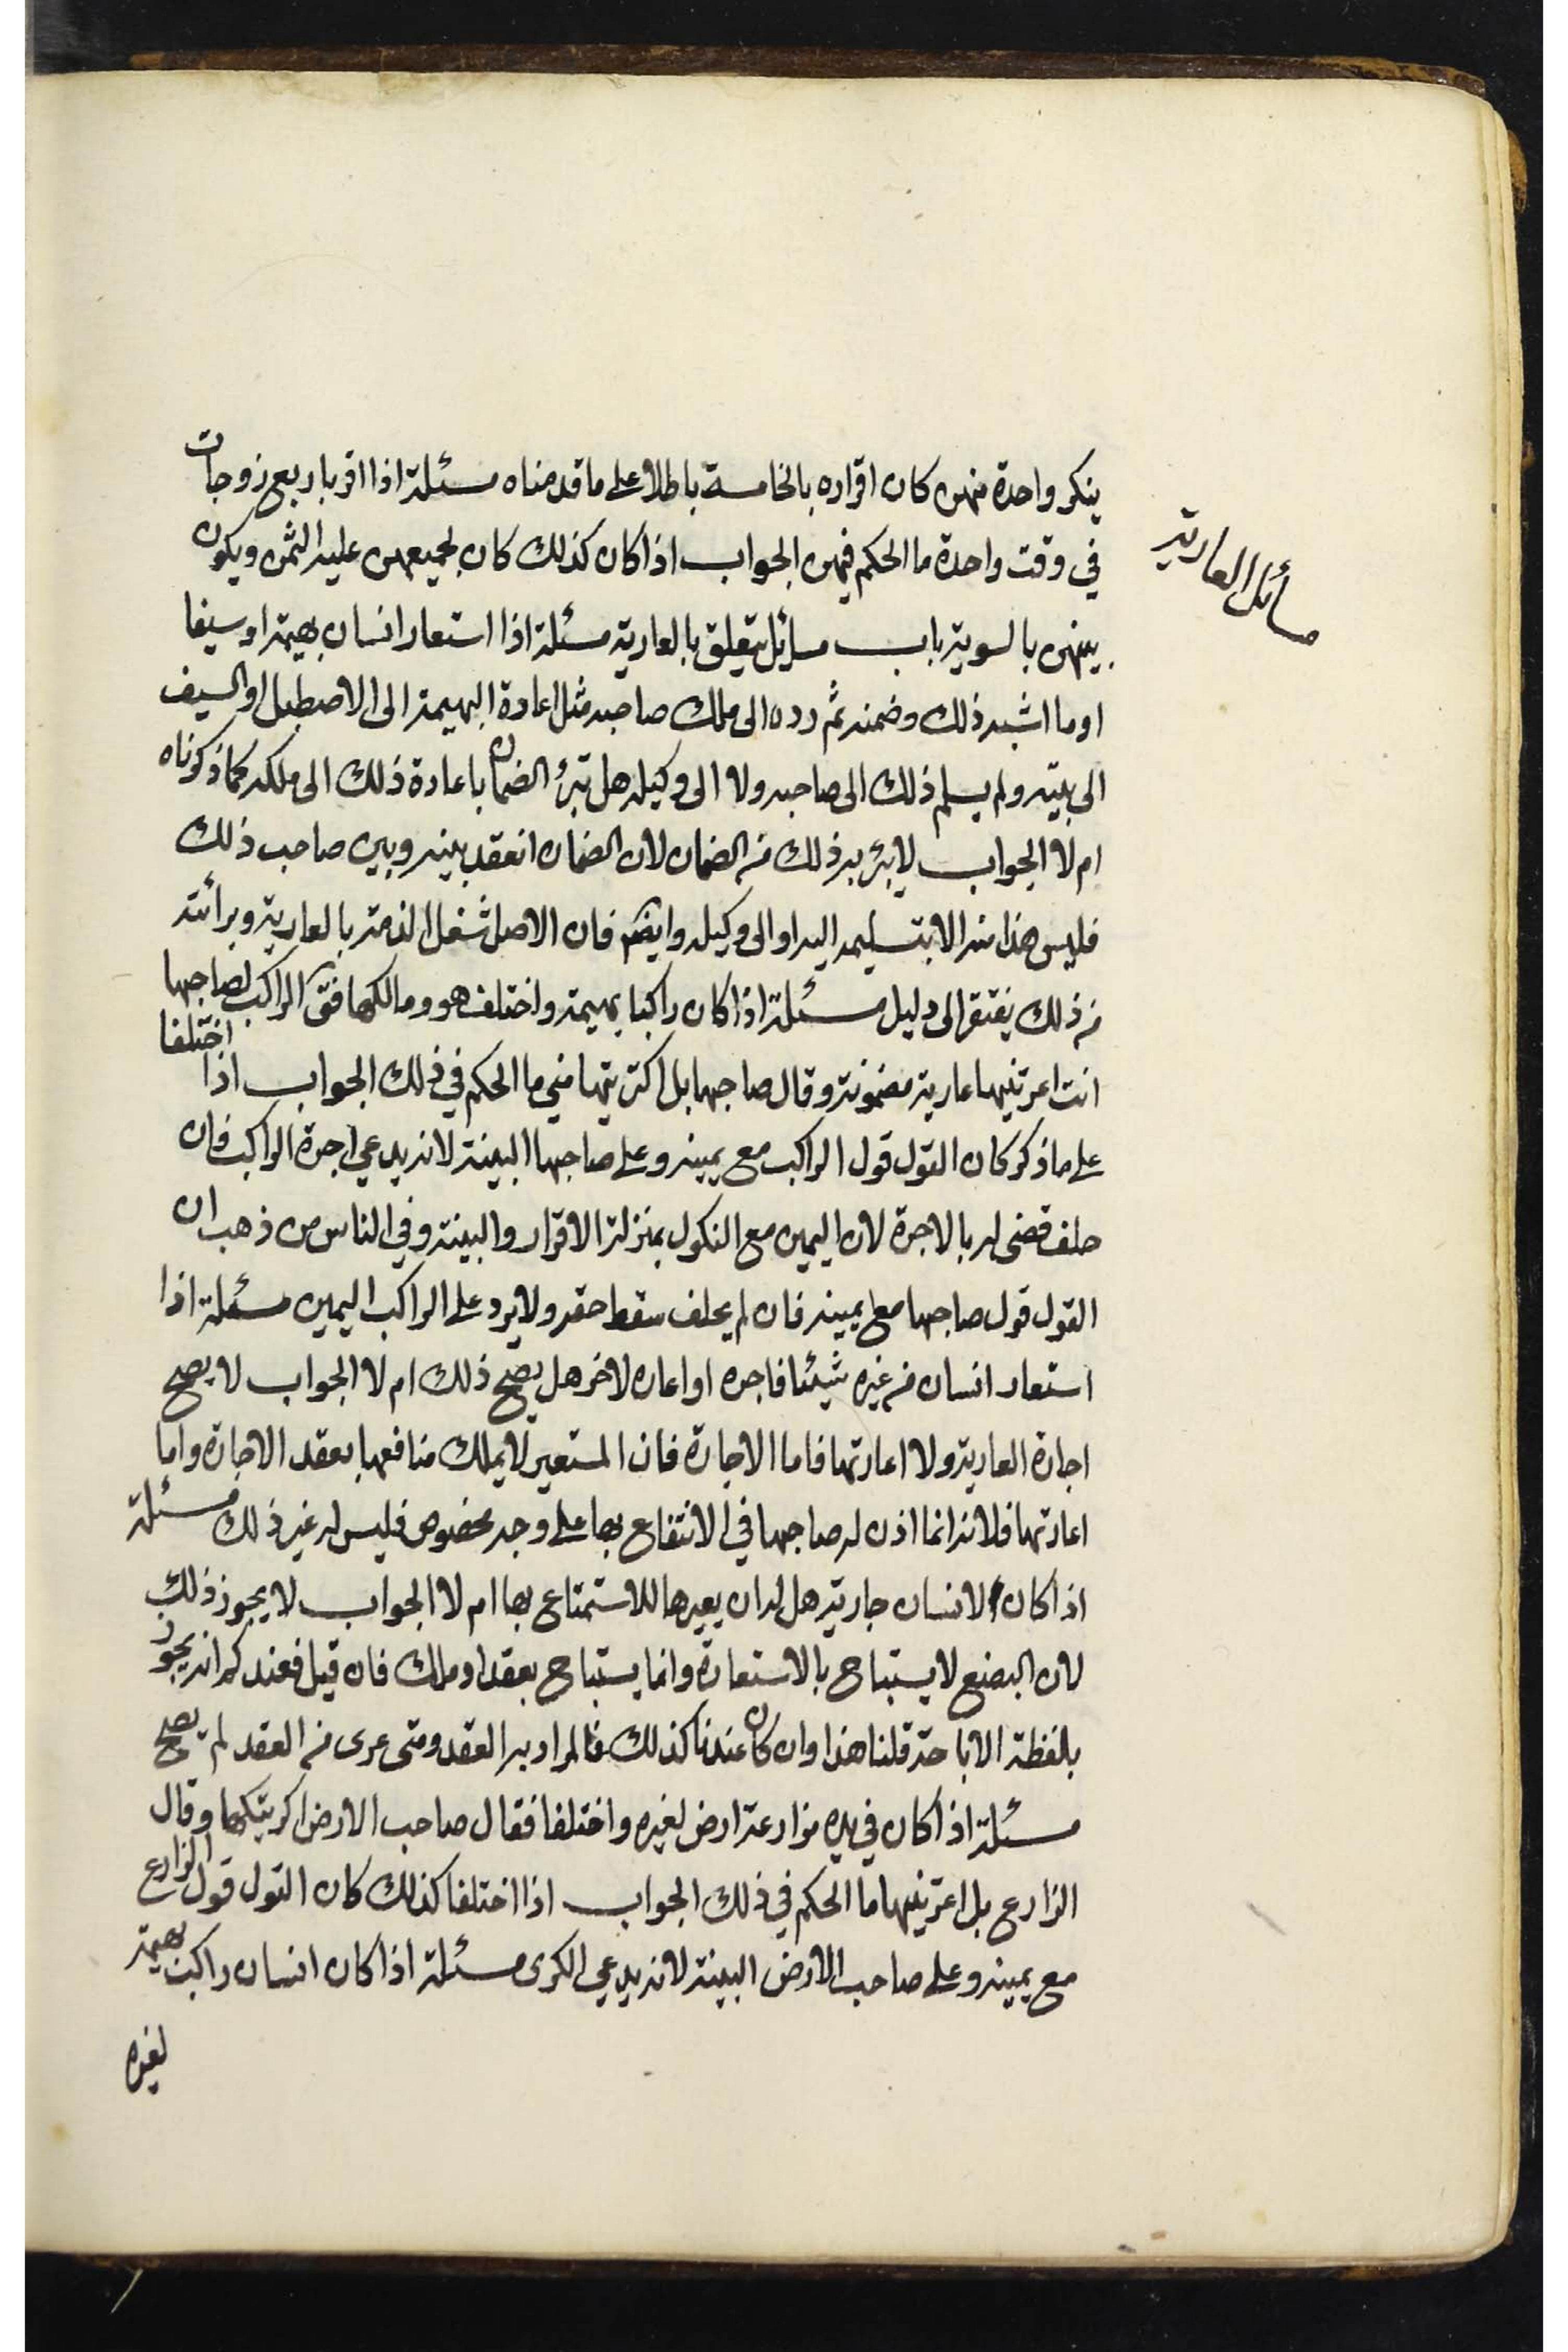 مسائل العارية
ينكر واحدة منهن كان اقراره بالخامسة باطلا على ما قدمناه مسئلة اذا اقر باربع زوجات
في وقت واحدة ما الحكم فيهن الجواب اذا كان كذلك كان لجميعهن عليه الثمن ويكون
بينهن بالسوية باب مسائل يتعلق بالعارية مسئلة اذا استعار انسان بهيمة او سيفا
او ما اشبه ذلك وضمنه ثم رده الى ملك صاحبه مثل اعادة البهيمة الى الاصطبل او السيف
الى بيته ولم يسلم ذلك الى صاحبه ولا الى وكيله هل تبرؤ الضمان باعادة ذلك الى ملكه كما ذكرناه
ام لا الجواب لا يبرؤ بذلك من الضمان لان الضمان انعقد بينه وبين صاحب ذلك
فليس هذا منه الا بتسليمه اليه او الى وكيله وايضم فان الاصل شغل الذمة بالعارية وبرائته
من ذلك يفتقر الى دليل مسئلة اذا كان راكبا بهيمة واختلف هو ومالكها فق الراكب لصاحبها
انت اعرتنيها عارية مضمونة وقال صاحبها بل اكتريتها مني ما الحكم في ذلك الجواب اذا اختلفا
على ما ذكر كان القول قول الراكب مع يمينه وعلى صاحبها البينة لانه يدعي اجرة الراكب فان
حلف قضى له بالاجرة لان اليمين مع النكول بمنزلة الاقرار والبينة وفي الناس من ذهب ان
القول قول صاحبها مع يمينه فان لم يحلف سقط حقه ولا يرد على الراكب اليمين مسئلة اذا
استعار انسان من غيره شيئا فاجره او اعاره لاخر هل يصح ذلك ام لا الجواب لا يصح
اجارة العارية ولا اعارتها فاما الاجارة فان المستعير لا يملك منافعها بعقد الاجارة واما
اعارتها فلانه انما اذن له صاحبها في الانتفاع بها على وجه مخصوص فليس له غير ذلك مسئلة
اذا كان لانسان جارية هل له ان يعيرها للاستمتاع بها ام لا الجواب لا يجوز ذلك
لان البضع لا يستباح بالاستعارة وانما يستباح بعقد او ملك فان قيل فعندكم انه يجوز
بلفظة الاباحة قلنا هذا وان كان عندنا كذلك فالمراد به العقد ومتى عرى من العقد لم يصح
مسئلة اذا كان في يده مزارعة ارض لغيره واختلفا فقال صاحب الارض اكريتكها وقال
الزارع بل اعرتنيها ما الحكم في ذلك الجواب اذا اختلفا كذلك كان القول قول الزارع
مع يمينه وعلى صاحب الارض البينة لانه يدعي الكرى مسئلة اذا كان انسان راكب بهيمة
لغيره